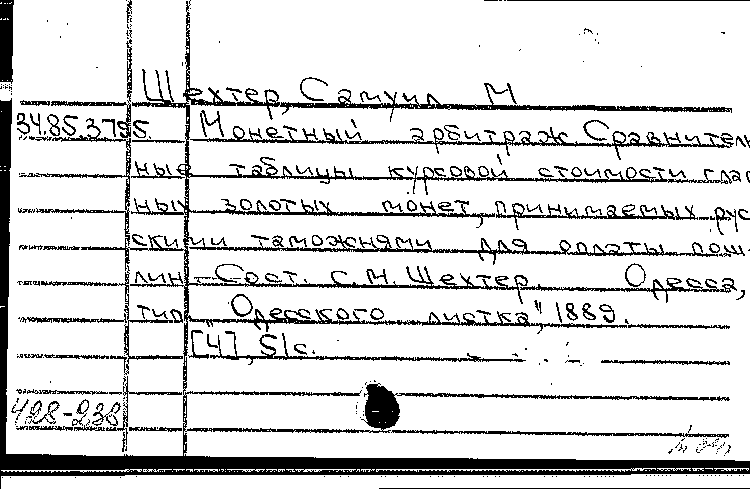 Шехтер, Самуил М
34.85.3795. Монетный арбитраж Сравнитель
ные таблицы курсовой стоимости глав
ных золотых монет, принимаемых рус
скими таможнями для оплаты пош-
лин. Сост. С.М. Шехтер. Одесса,
тип. "Одесского листка", 1889.
[4], 51с.
428-238